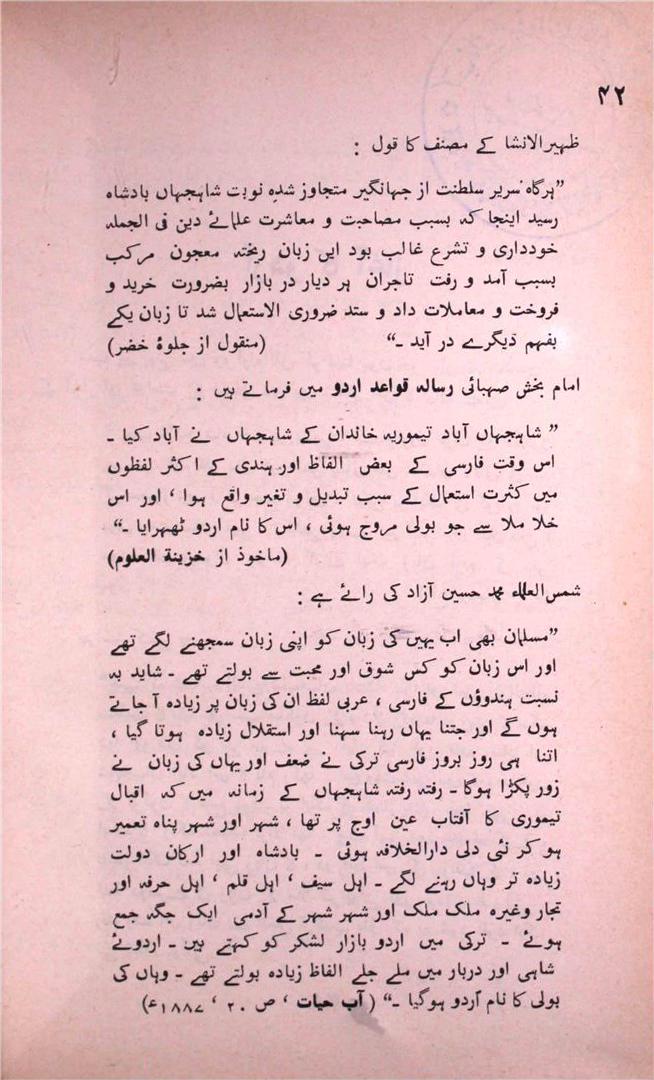 ۴۲
ظہیرالانشا کے مصنف کا قول :
”ہرگاہ سریر سلطنت از جہانگیر متجاوز شدہ نوبت شاہجہاں بادشاہ
رسید اینجا کہ بسبب مصاحبت و معاشرت علمائے دین فی الجملہ
خودداری و تشرع غالب بود ایں زبان ریختہ معجون مرکب
بسبب آمد و رفت تاجران ہر دیار در بازار بضرورت خرید و
فروخت و معاملات داد و ستد ضروری الاستعمال شد تا زبان یکے
بفہم دیگرے در آید ۔“ (منقول از جلوۂ خضر)
امام بخش صہبائی رسالہ قواعد اردو میں فرماتے ہیں :
” شاہجہاں آباد تیموریہ خاندان کے شاہجہاں نے آباد کیا ۔
اس وقت فارسی کے بعض الفاظ اور ہندی کے اکثر لفظوں
میں کثرت استعمال کے سبب تبدیل و تغیر واقع ہوا ، اور اس
خلا ملا سے جو بولی مروج ہوئی ، اس کا نام اردو ٹھہرایا ۔“
(ماخوذ از خزینۃ العلوم)
شمس العلماء محمد حسین آزاد کی رائے ہے :
”مسلمان بھی اب یہیں کی زبان کو اپنی زبان سمجھنے لگے تھے
اور اس زبان کو کس شوق اور محبت سے بولتے تھے ۔ شاید بہ
نسبت ہندوؤں کے فارسی ، عربی لفظ ان کی زبان پر زیادہ آ جاتے
ہوں گے اور جتنا یہاں رہنا سہنا اور استقلال زیادہ ہوتا گیا ،
اتنا ہی روز بروز فارسی ترکی نے ضعف اور یہاں کی زبان نے
زور پکڑا ہوگا ۔ رفتہ رفتہ شاہجہاں کے زمانہ میں کہ اقبال
تیموری کا آفتاب عین اوج پر تھا ، شہر اور شہر پناہ تعمیر
ہو کر نئی دلی دارالخلافہ ہوئی ۔ بادشاہ اور ارکان دولت
زیادہ تر وہاں رہنے لگے ۔ اہل سیف ، اہل قلم ، اہل حرفہ اور
تجار وغیرہ ملک ملک اور شہر شہر کے آدمی ایک جگہ جمع
ہوئے ۔ ترکی میں اردو بازار لشکر کو کہتے ہیں ۔ اردوئے
شاہی اور دربار میں ملے جلے الفاظ زیادہ بولتے تھے ۔ وہاں کی
بولی کا نام اُردو ہوگیا ۔“ (آب حیات ، ص ۲۰ ، ۱۸۸۷ع)